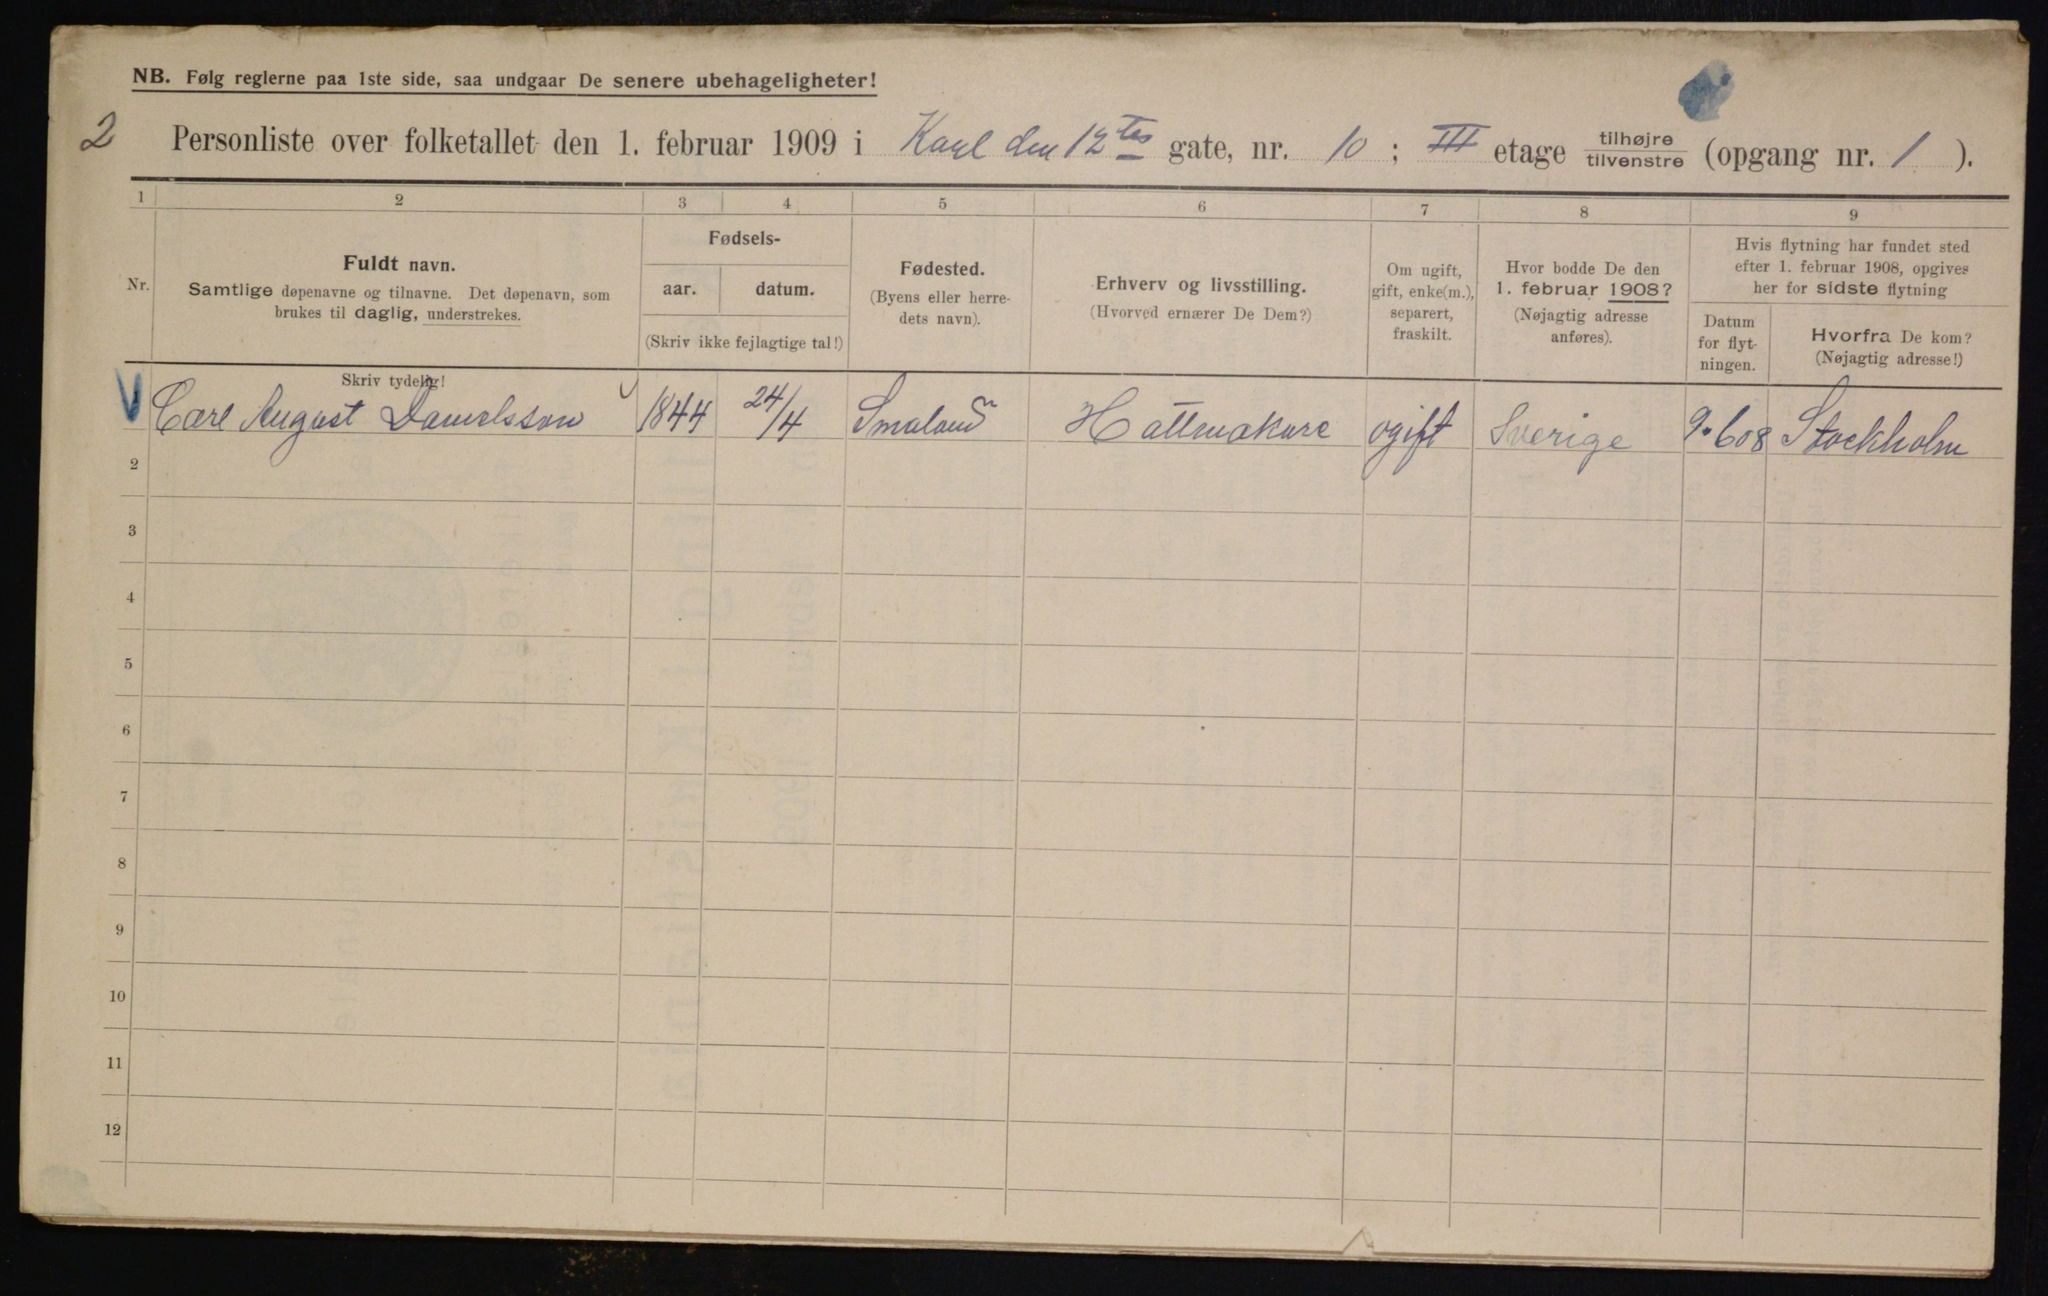 NB. Følg reglerne paa 1ste side, saa undgaar De senere ubehageligheter!
2 Personliste over folketallet den 1. februar 1909 i Karl den 12tes gate, nr. 10 ; III etage tilhøjre tilvenstre (opgang nr. 1 ).
1 2 3 4 5 6 7 8 9
Nr.
Fuldt navn.
Samtlige døpenavne og tilnavne. Det døpenavn, som
brukes til daglig, understrekes.
Skriv tydelig!
Fødsels-
aar. datum.
(Skriv ikke fejlagtige tal!)
Fødested.
(Byens eller herre-
dets navn).
Erhverv og livsstilling.
(Hvorved ernærer De Dem?)
Om ugift,
gift, enke(m.),
separert,
fraskilt.
Hvor bodde De den
1. februar 1908?
(Nøjagtig adresse
anføres).
Hvis flytning har fundet sted
efter 1. februar 1908, opgives
her for sidste flytning
Datum
for flyt-
ningen.
Hvorfra De kom?
(Nøjagtig adresse!)
Carl August Danielsson 1844 24/4 Smaland Hattmakare ogift Sverige 9.608 Stockholm
2
3
4
5
6
7
8
9
10
11
12